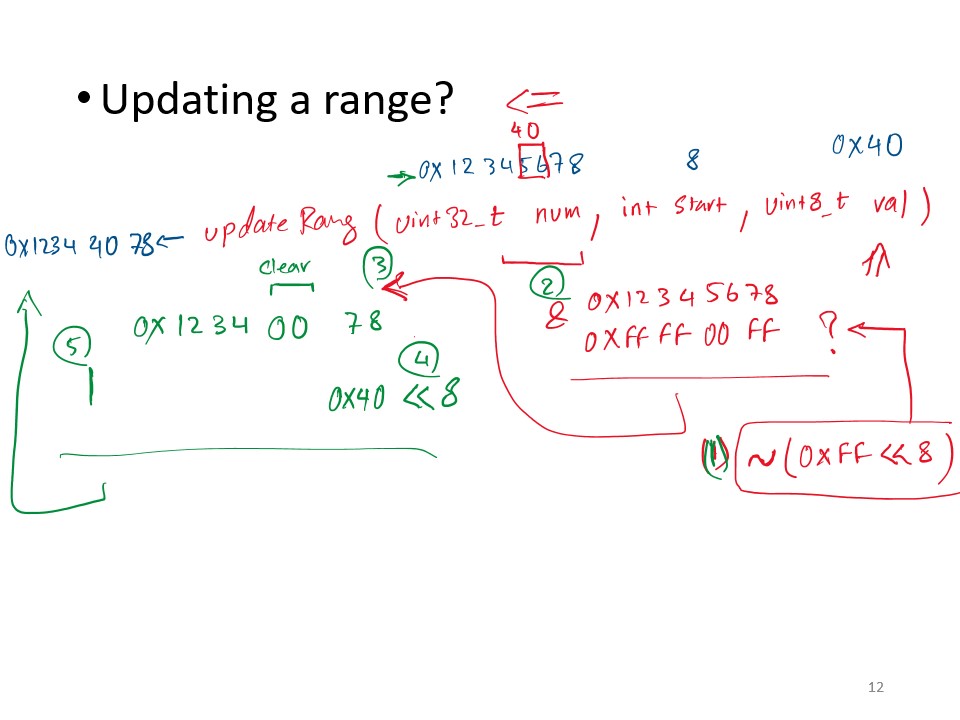 • Updating a range?
<=
40
→ 0x12345678 8 0x40
0x1234 40 78 ← update Rang (uint32_t num, int start, uint8_t val)
clear 3 2 ⇑
0x12345678
0x1234 00 78 & 0xFF FF 00 FF ? ←
5 | 4
0x40 << 8
1 ~(0xFF << 8)
12